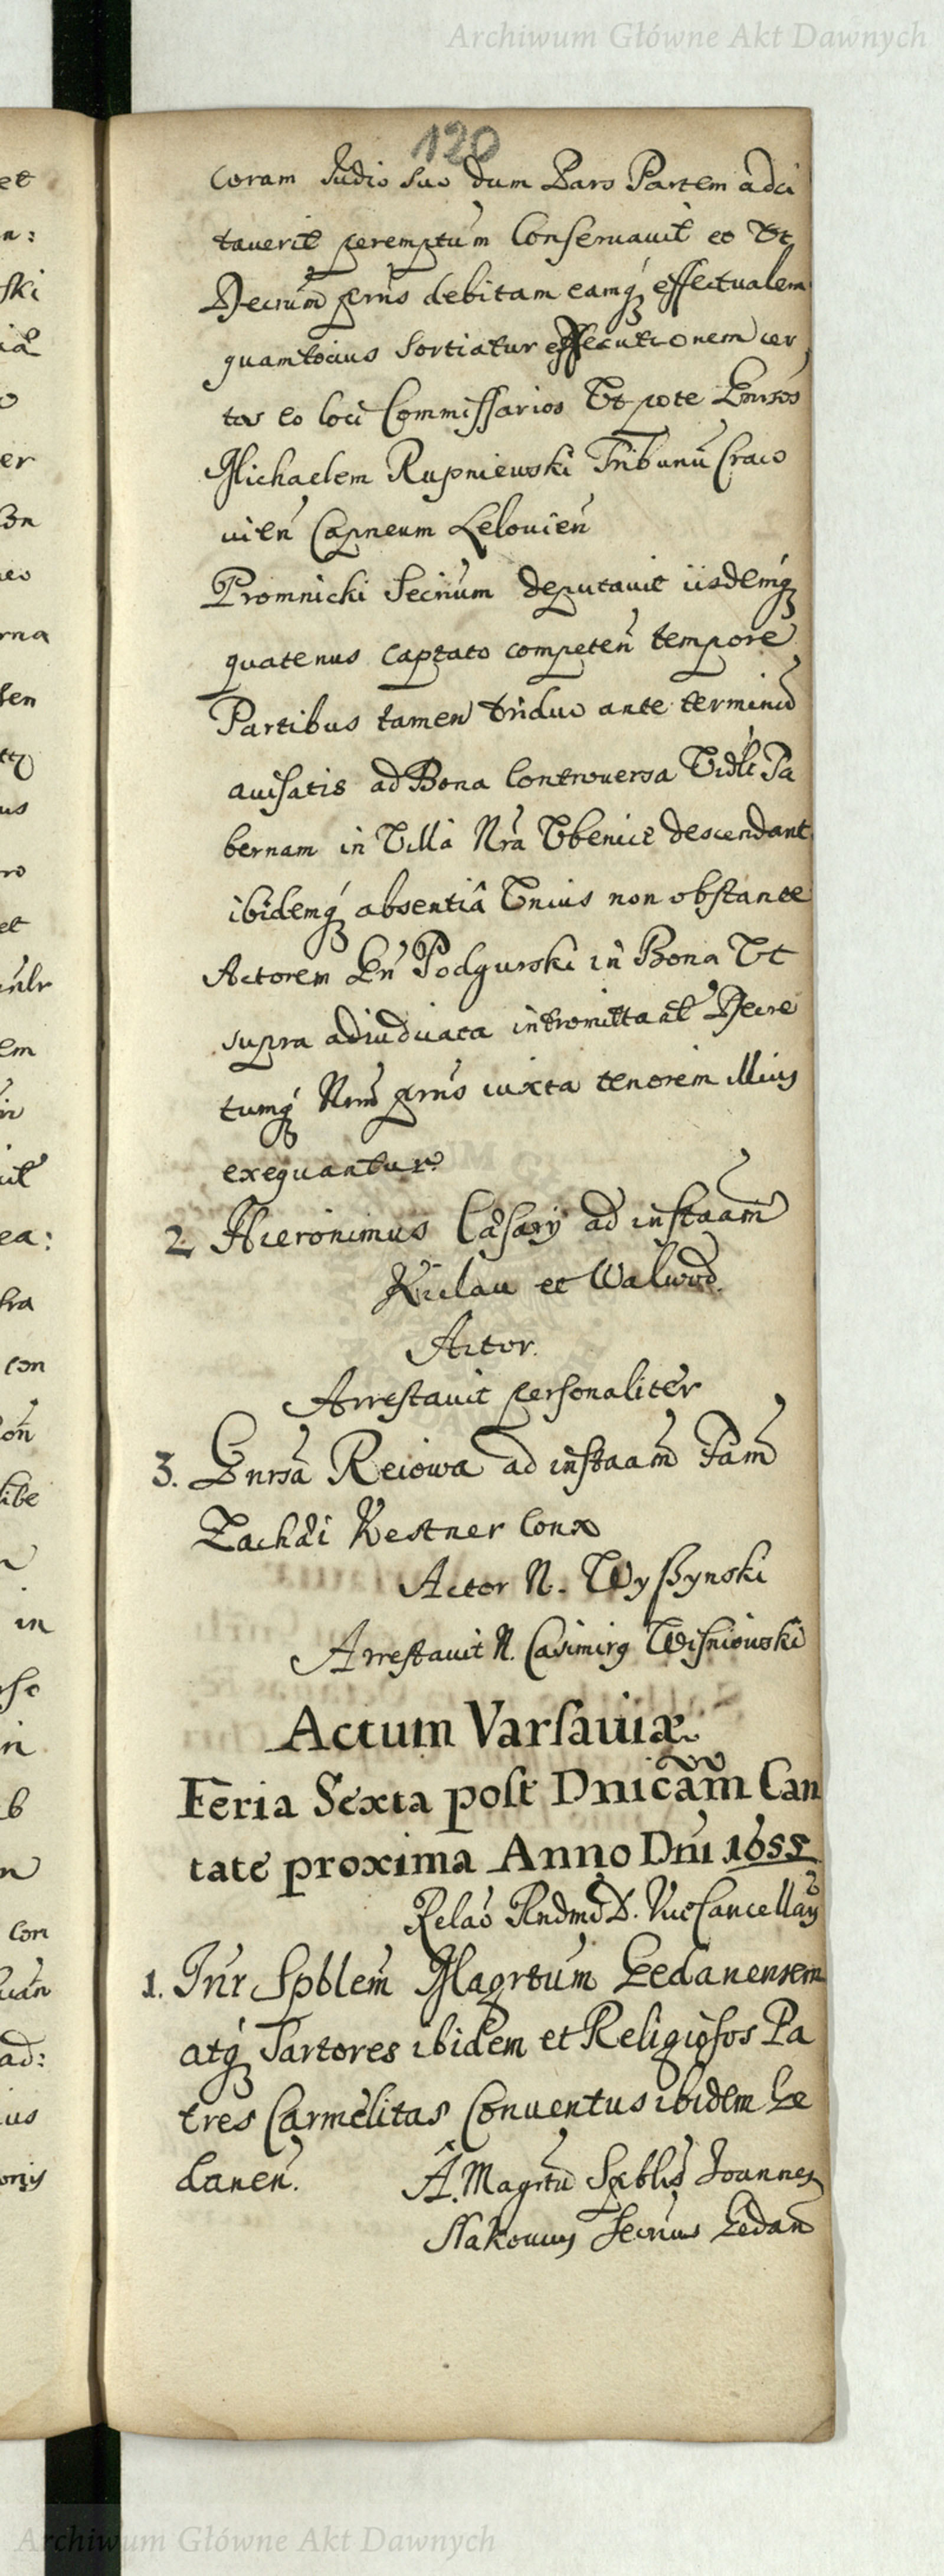 Archiwum Główne Akt Dawnych
120
Coram Judio suo dum Pars Partem adci
taverit peremptum Conservavit et Ut
Decrum prns debitam eamq́ effectualem
quamtocius sortiatur executionem cer
tos eo loci Commissarios Ut pote Gnrsos
Michaelem Rupniewski Tribunū Craco
vien̄ Capneum Lelovien̄
Promnicki Secrium deputavit iisdemq́
quatenus captato competen̄ tempore
Partibus tamen triduo ante terminū
avisatis ad Bona Controversa Vidlt Ta
bernam in Villa Nra Ubenice descendant
ibidemq́ absentiâ Unius non obstante
Actorem Gn̄ Podgurski in Bona Ut
supra adiudicata intromittaāt Decre
tumq́ Nrm prns iuxta tenorem illius
exequantur
2. Hieronimus Cæsary ad instaam̄
Kiclau et Walwod.
Actor.
Arrestavit personaliter
3. Gnrsa Reiowa ad instaam̄ Fam̄
Zachái Kestner Conx
Actor N. Wyszynski
Arrestavit N. Casimirq Wisniowski
Actum Varsaviæ
Feria Sexta post Dnicam̄ Can
tate proxima Anno Dni 1655
Relaō Rndmi D. ViceCancellarÿ
1. Inr Spblem̄ Magrtum Gedanensem
atq́ Tartores ibidem et Religiosos Pa
tres Carmelitas Conventus ibidem Ge
danen̄.
A. Magrtū Spblis Joannes
Secrius Gedan̄
et
n:
ski
o
er
rna
us
ro
et
em
ea:
con
in
b
con
ad:
ius
Archiwum Główne Akt Dawnych